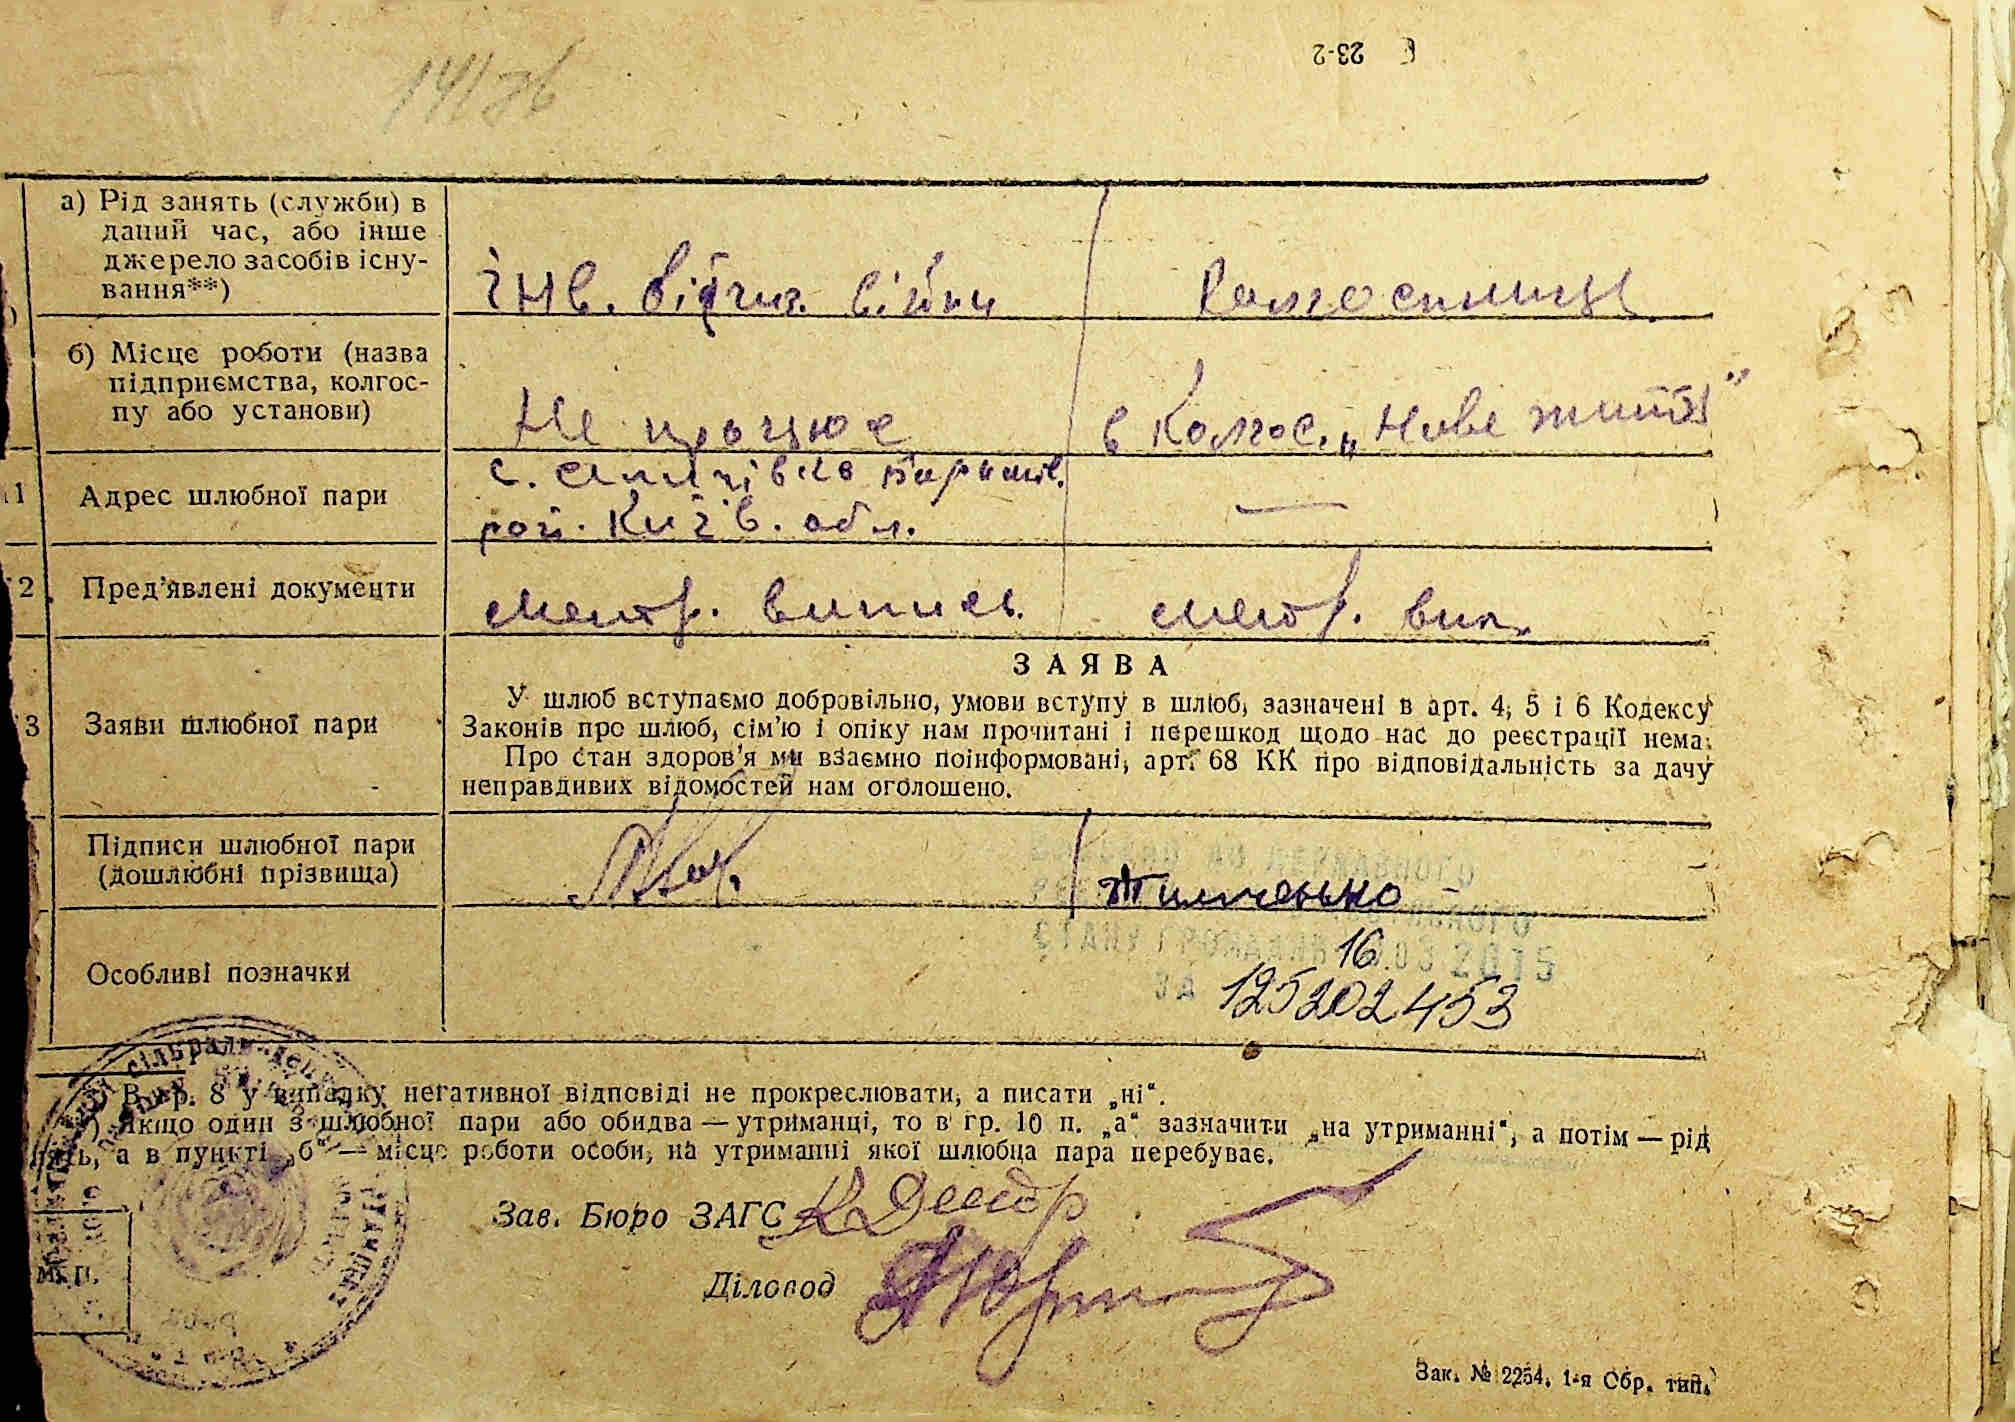 141
23-2
а) Рід занять (служби) в
даний час, або інше
джерело засобів існу-
вання**)
інв. вітчиз. війни
Колгоспниця
б) Місце роботи (назва
підприємства, колгос-
пу або установи)
Не працює
в Колгос. „Нове життя"
11 Адрес шлюбної пари
с. Баришів.
рай. Київ. обл.
—
12 Пред'явлені документи
метр. випись.
метр. вип.
13 Заяви шлюбної пари
ЗАЯВА
У шлюб вступаємо добровільно, умови вступу в шлюб, зазначені в арт. 4, 5 і 6 Кодексу
Законів про шлюб, сім'ю і опіку нам прочитані і перешкод щодо нас до реєстрації нема.
Про стан здоров'я ми взаємно поінформовані, арт. 68 КК про відповідальність за дачу
неправдивих відомостей нам оголошено.
Підписи шлюбної пари
(дошлюбні прізвища)
Тимченко
ДО ДЕРЖАВНОГО
СТАНУ ГРОМАДЯН 16.03 2015
ЗА 125202453
Особливі позначки
В гр. 8 у випадку негативної відповіді не прокреслювати, а писати „ні".
) Якщо один з шлюбної пари або обидва — утриманці, то в гр. 10 п. „а" зазначити „на утриманні", а потім — рід
а в пункті „б" — місце роботи особи, на утриманні якої шлюбна пара перебуває.
Зав. Бюро ЗАГС
Діловод
М. П.
Зак. № 2254. 1-я Обр. тип.